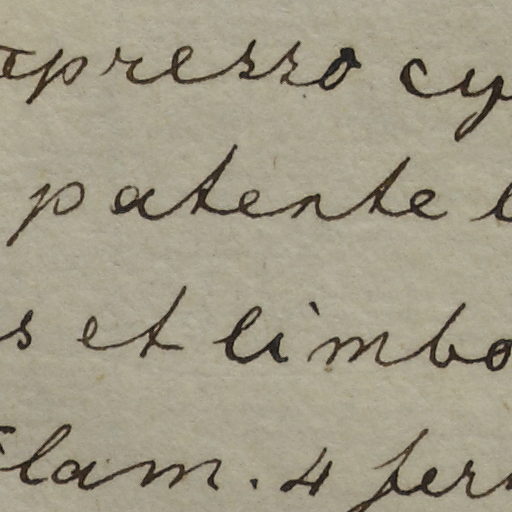 presso cy
patente
s et limbo
lam. 4 fer